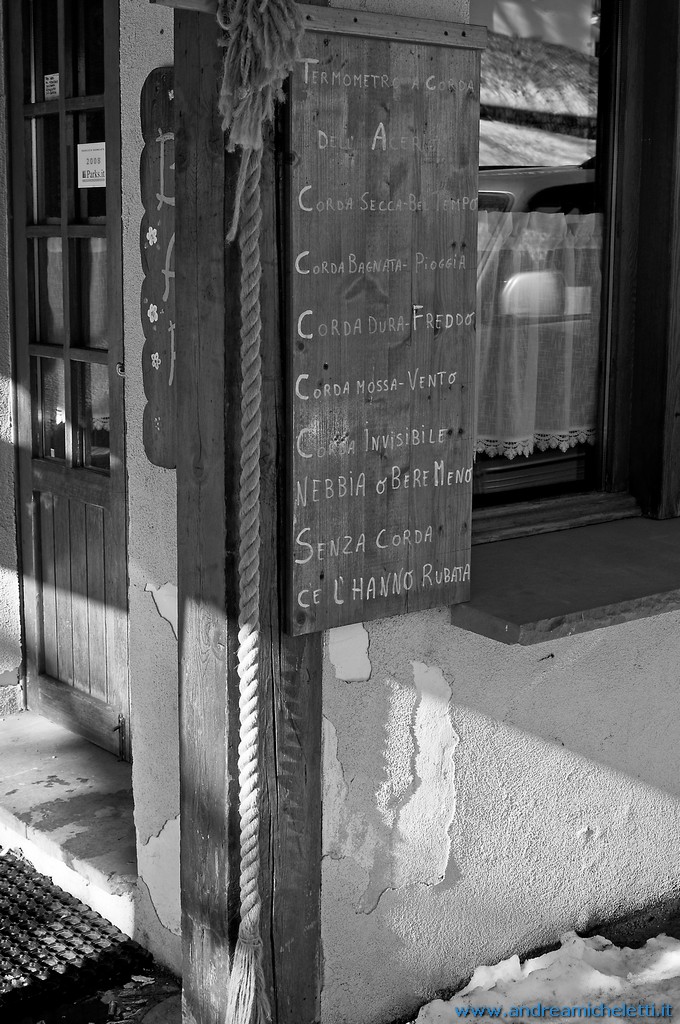 TERMOMETRO A CORDA
DELL'ACERO
CORDA SECCA-BEL TEMPO
CORDA BAGNATA-PIOGGIA
CORDA DURA-FREDDO
CORDA MOSSA-VENTO
CORDA INVISIBILE
NEBBIA o BERE MENO
SENZA CORDA
CE L'HANNO RUBATA
2008
Parks.it
www.andreamicheletti.it